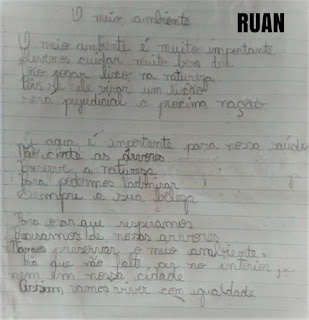 O meio ambiente
RUAN
O meio ambiente é muito importante
devemos cuidar muito bem dele
Não jogar lixo na natureza
Pois se ele virar um lixão
sera prejudicial a proxima nação
A agua é importante para nossa saúde
Não corte as árvores
Preserve a natureza
Para podermos admirar
Sempre a sua beleza
Para o ar que respiramos
Precisamos de nossas arvores
Vamos preservar o meio ambiente
que não falte ar no interior,
nem em nossa cidade
Assim vamos viver com igualdade